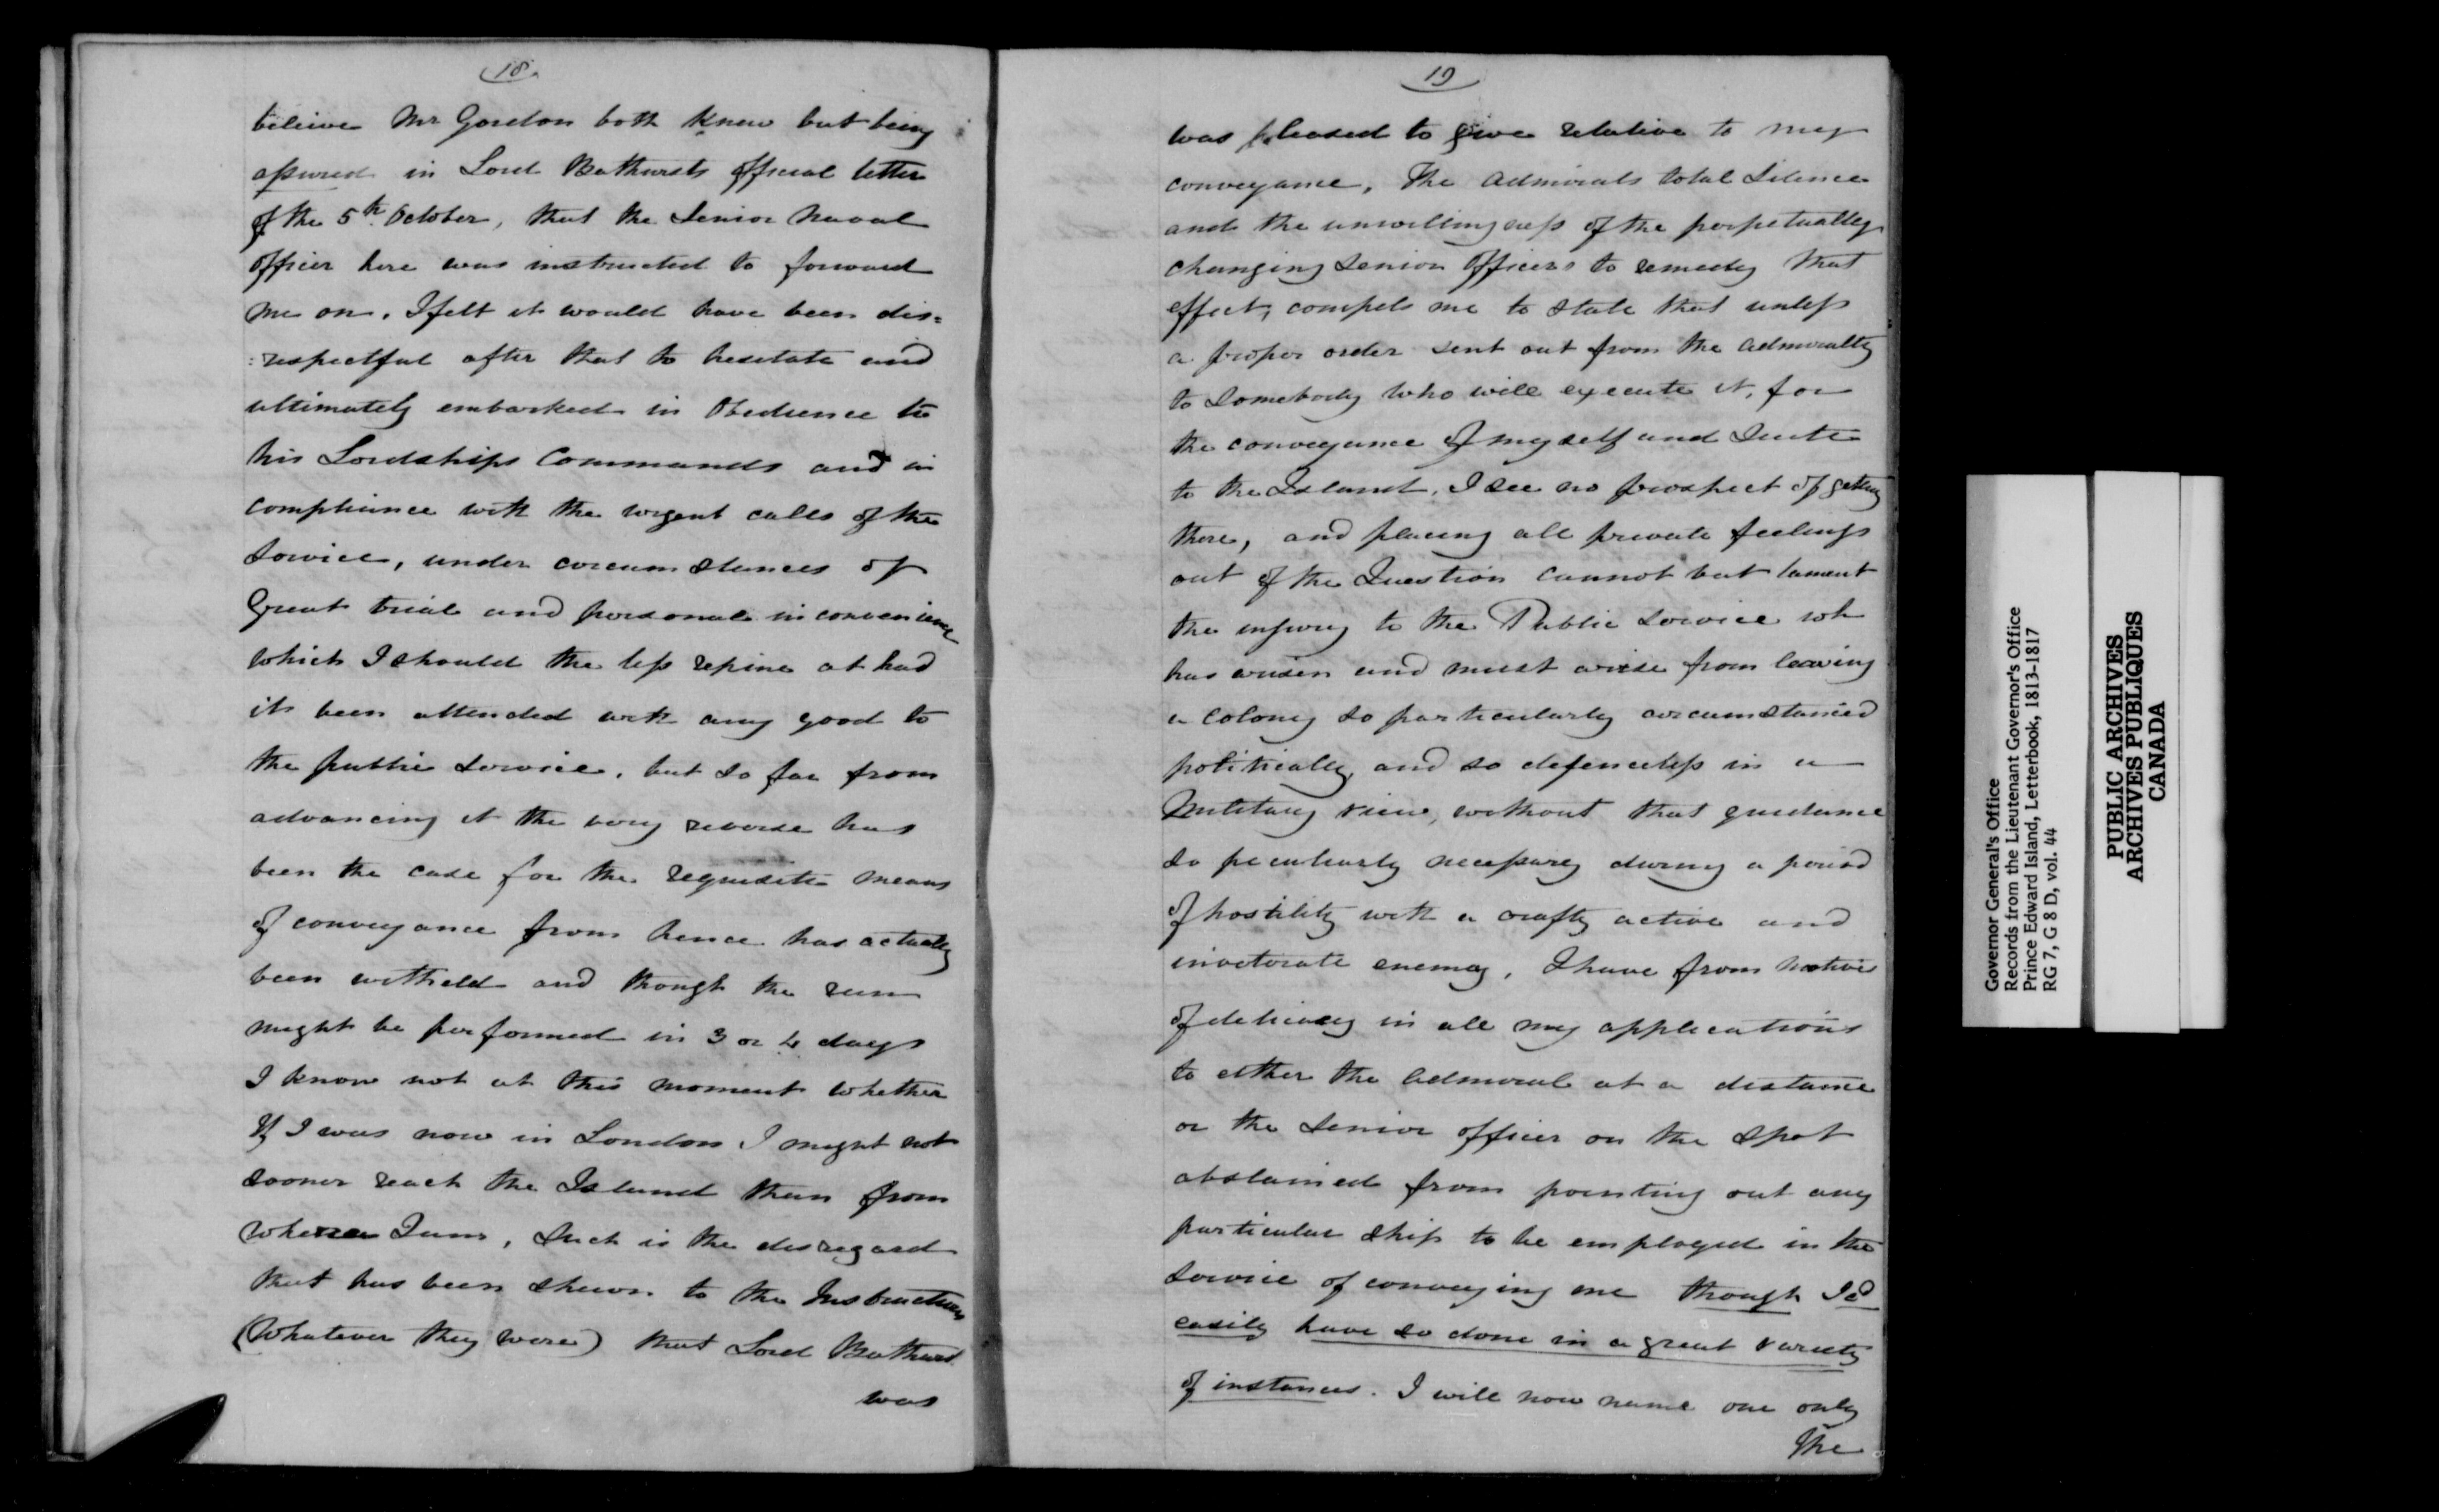 18.
beleive Mr Gordon both knew but being
assured in Lord Bathursts official letter
of the 5th October, that the Senior Naval
officer here was instructed to forward
me on. I felt it would have been dis=
:respectful after that to hesitate and
ultimately embarked in Obedience to
his Lordships Commands and in
compliance with the urgent calls of the
Service, under circumstances of
Great trial and personal inconvenience
which I should the less repine at had
it been attended with any good to
the public service, but so far from
advancing it the very reverse has
been the case for the requisite means
of conveyance from hence has actually
been witheld and though the run
might be performed in 3 or 4 days
I know not at this moment whether
If I was now in London I might not
sooner reach the Island than from
whence I am, Such is the disregard
that has been shewn to the Instructions
(Whatever they were) that Lord Bathurst
was
19
was pleased to give relative to my
conveyance, The Admirals total Silence
and the unwillingness of the perpetually
changing Senior Officers to remedy that
effect, compels me to state that unless
a proper order sent out from the Admiralty
to Somebody who will execute it, for
the conveyance of myself and Suite
to the Island, I see no prospect of getting
there, and placing all private feelings
out of the Question cannot but lament
the injury to the Public Service wh
has arisen and must arise from leaving
a Colony so particularly circumstanced
politically, and so defenceless in a
Military view, without that guidance
so peculiarly necessary during a period
of hostility with a crafty active and
inveterate enemy, I have from motives
of delicacy in all my applications
to either the Admiral at a distance
or the Senior officer on the Spot
abstained from pointing out any
particular Ship to be employed in the
Service of conveying me though I cd
easily have so done in a great variety
of instances. I will now name one only
The
Governor General's Office
Records from the Lieutenant Governor's Office
Prince Edward Island, Letterbook, 1813-1817
RG 7, G 8 D, vol. 44
PUBLIC ARCHIVES
ARCHIVES PUBLIQUES
CANADA